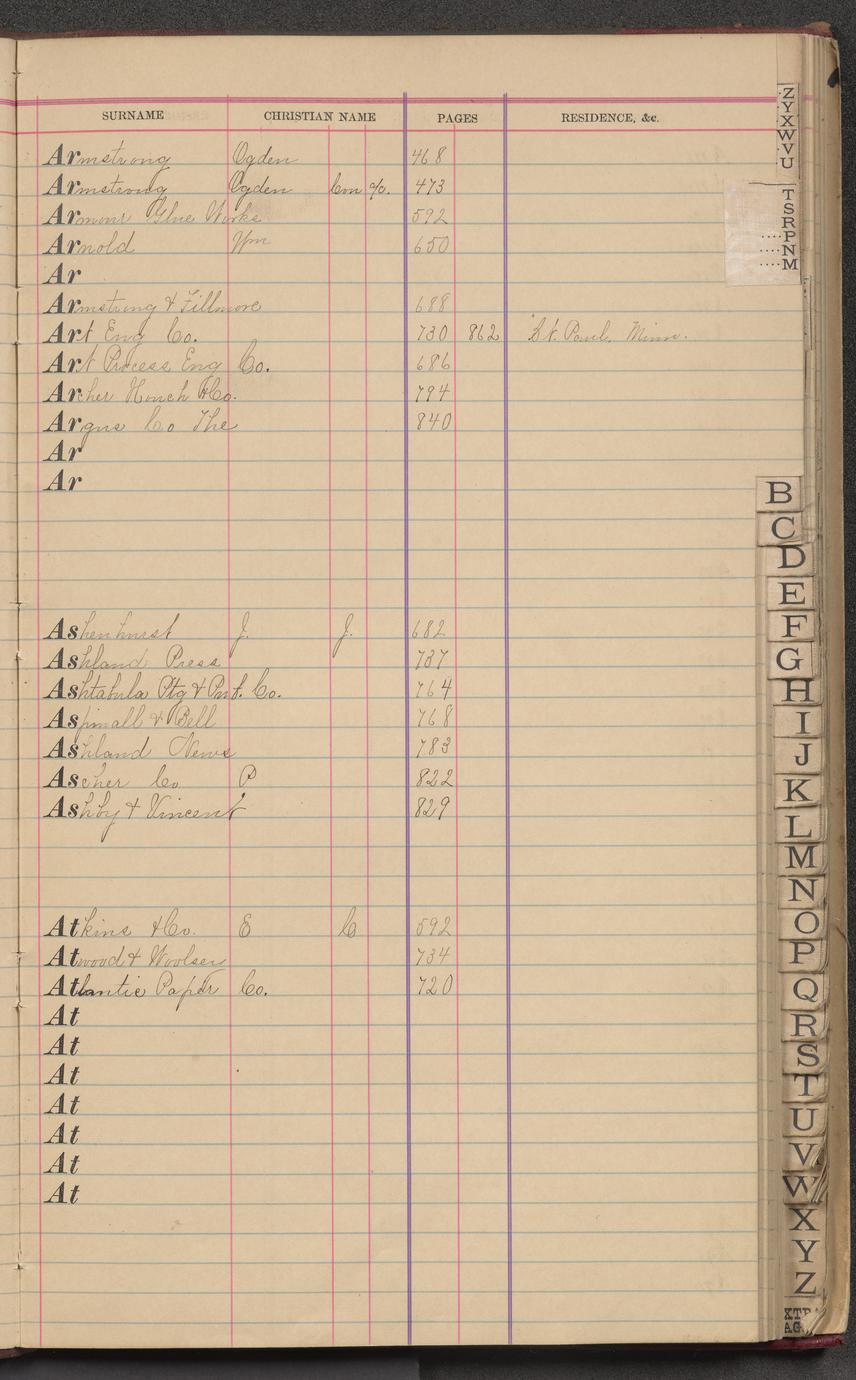 SURNAME CHRISTIAN NAME PAGES RESIDENCE, &c.
Armstrong Ogden 468
Armstrong Ogden Com %. 473
Armour Glue Works 592
Arnold Wm 650
Ar
Armstrong & Fillmore 688
Art Eng Co. 730 862 St. Paul, Minn.
Art Process Eng Co. 686
Archer &Co. 794
Argus Co The 840
Ar
Ar
Ashenhurst J. J. 682
Ashland Press 737
Ashtabula Ptg & Pub. Co. 764
Aspinall & Bell 768
Ashland News 783
Ascher Co P 822
Ashby & Vincent 829
Atkins &Co. E C 592
Atwood & Woolsen 734
Atlantic Paper Co. 720
At
At
At
At
At
At
At
Z
Y
X
W
V
U
T
S
R
P
N
M
B
C
D
E
F
G
H
I
J
K
L
M
N
O
P
Q
R
S
T
U
V
W
X
Y
Z